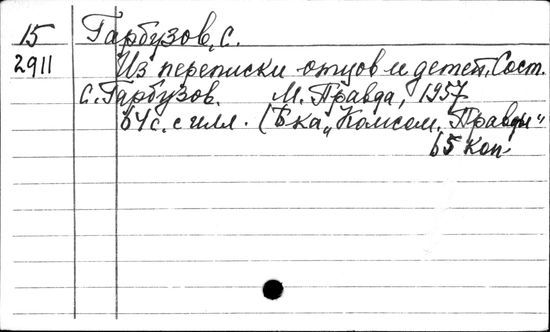 15 Гарбузов, С.
2911 Из переписки отцов и детей. Сост.
С. Гарбузов. М. Правда, 1957
64 с. с илл. (Б-ка „Комсом. Правды"
65 коп